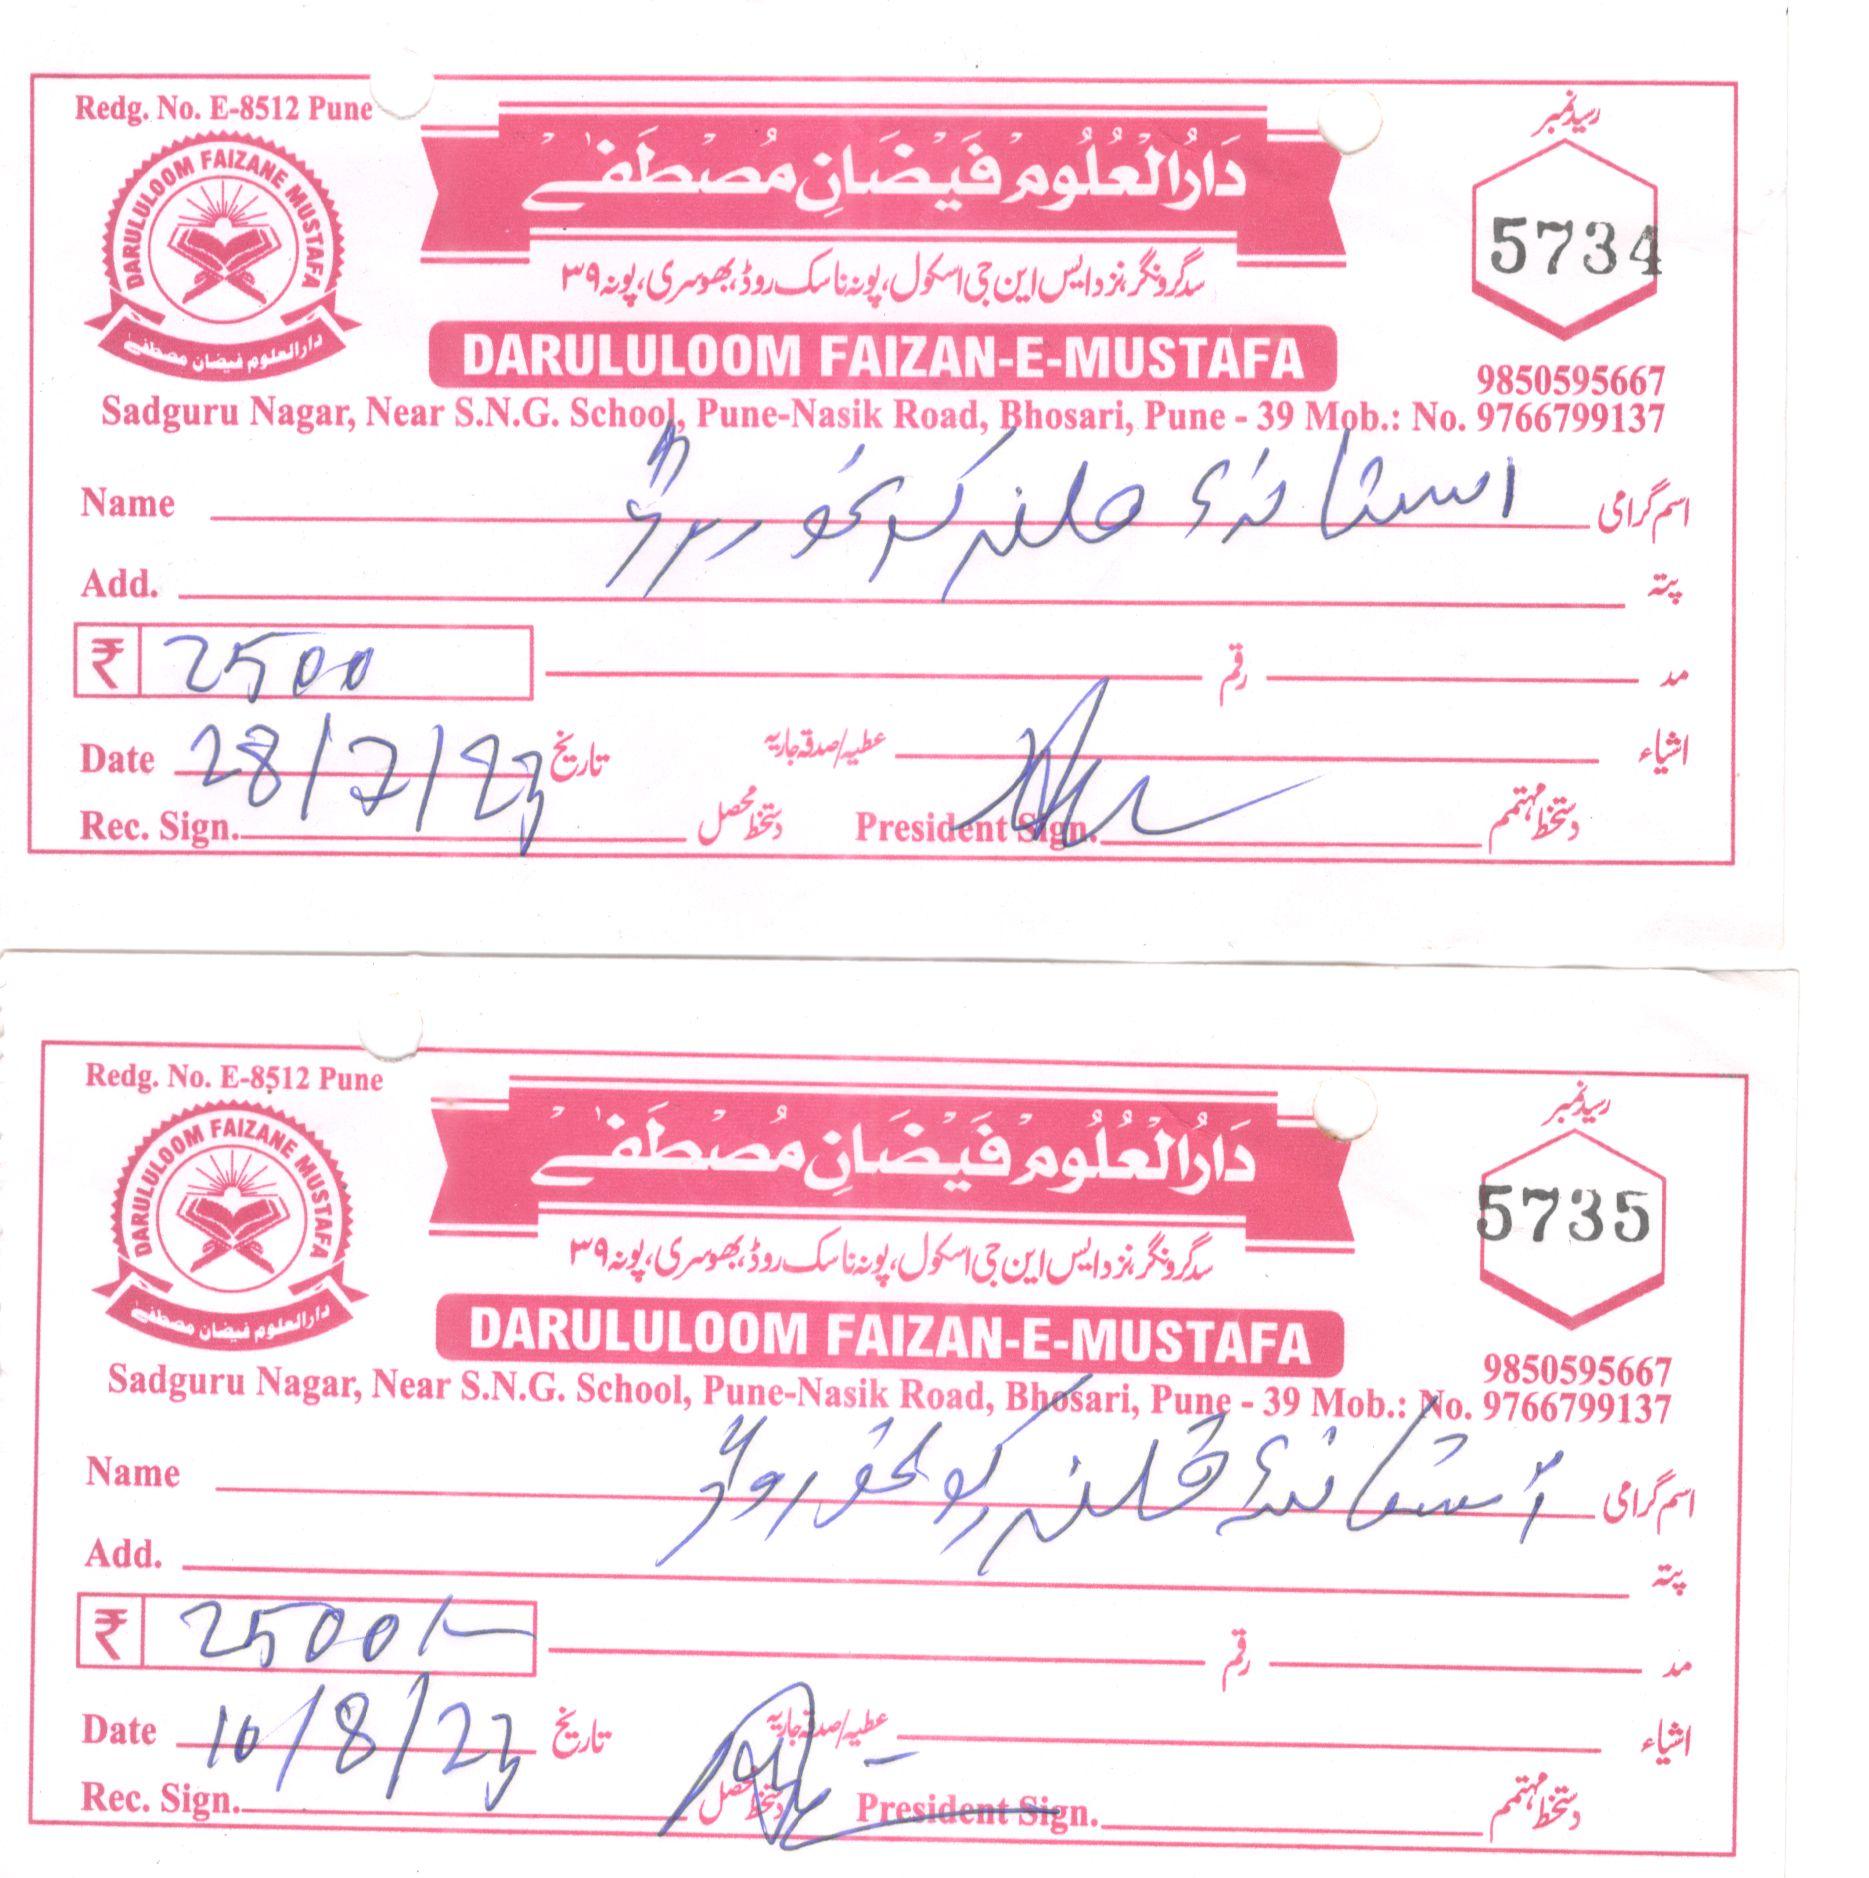 Redg. No. E-8512 Pune
رسید نمبر
DARULULOOM FAIZANE MUSTAFA
دارالعلوم فیضان مصطفےٰ
دَارُالْعُلُوْم فَیْضَانِ مُصْطَفٰے
5734
سدگرونگر، نزد ایس این جی اسکول، پونہ ناسک روڈ، بھوسری، پونہ ۳۹
DARULULOOM FAIZAN-E-MUSTAFA
9850595667
Sadguru Nagar, Near S.N.G. School, Pune-Nasik Road, Bhosari, Pune - 39 Mob.: No. 9766799137
Name اسم گرامی
Add. پتہ
₹ 2500 رقم مد
Date 28/7/23 تاریخ عطیہ/صدقہ جاریہ اشیاء
Rec. Sign. دستخط محصل President Sign. دستخط مہتمم
Redg. No. E-8512 Pune
رسید نمبر
DARULULOOM FAIZANE MUSTAFA
دارالعلوم فیضان مصطفےٰ
دَارُالْعُلُوْم فَیْضَانِ مُصْطَفٰے
5735
سدگرونگر، نزد ایس این جی اسکول، پونہ ناسک روڈ، بھوسری، پونہ ۳۹
DARULULOOM FAIZAN-E-MUSTAFA
9850595667
Sadguru Nagar, Near S.N.G. School, Pune-Nasik Road, Bhosari, Pune - 39 Mob.: No. 9766799137
Name اسم گرامی
Add. پتہ
₹ 2500/- رقم مد
Date 10/8/23 تاریخ عطیہ/صدقہ جاریہ اشیاء
Rec. Sign. دستخط محصل President Sign. دستخط مہتمم